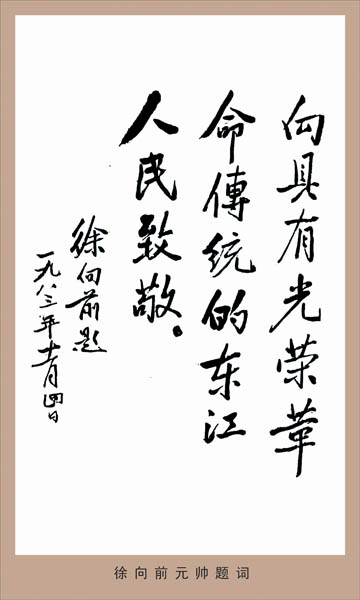 向具有光荣革
命傳统的东江
人民致敬。
徐向前题
一九八三年十一月四日
徐向前元帅题词